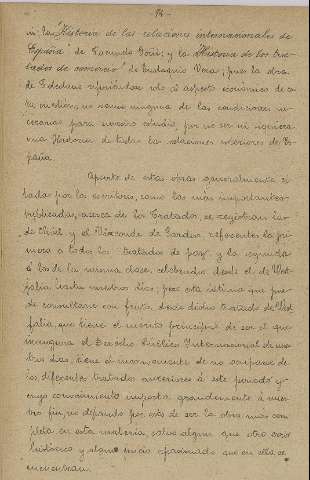 - 14 -
ni la "Historia de las relaciones internacionales de
España" de Facundo Goñi; y la "Historia de los tra-
tados de comercio" de Eustaquio          ; pues la obra
de              refiriéndose solo al aspecto económico de es-
ta cuestión, no reune ninguna de las condiciones ne-
cesarias para nuestro estudio, por no ser ni siquiera
una Historia de todas las relaciones exteriores de Es-
paña.
Aparte de estas obras generalmente ci-
tadas por los escritores, como las más importantes
publicadas, acerca de los Tratados, se registran las
de           y el Vizconde de Garden, referentes la pri-
mera a todos los tratados de paz y la segunda
á los de la misma clase, celebrados desde el de West-
falia hasta nuestros dias; pero esta última que pue-
de consultarse con fruto, desde dicho tratado de West-
falia, que tiene el mérito principal de ser el que
inaugura el Derecho Público Internacional de nues-
tros dias, tiene el inconveniente de no ocuparse de
los diferentes tratados anteriores á este periodo y
cuyo conocimiento importa grandemente á nues-
tro fin, no dejando por esto de ser la obra más com-
pleta en esta materia, salvo algun que otro
histórico y algun juicio apasionado que en ella se
encuentran.